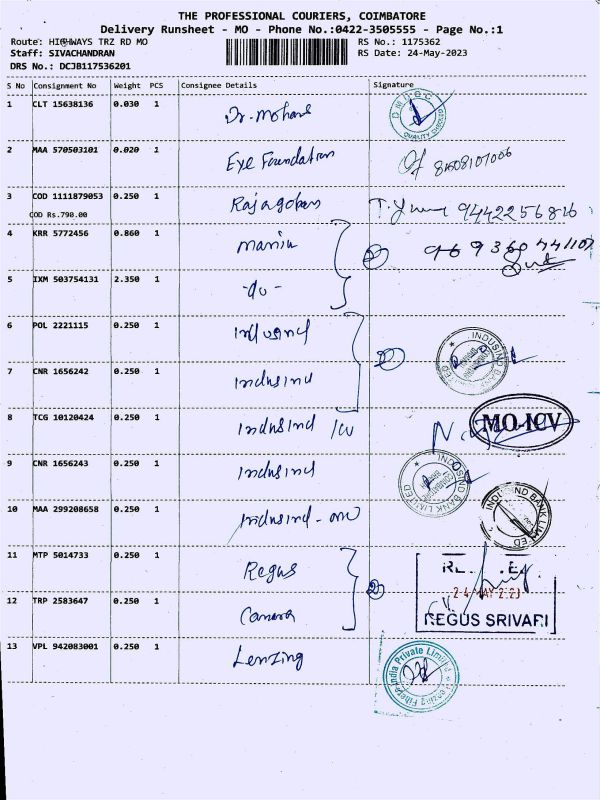 THE PROFESSIONAL COURIERS, COIMBATORE
Delivery Runsheet - MO - Phone No.:0422-3505555 - Page No.:1
Route: HIGHWAYS TRZ RD MO RS No.: 1175362
Staff: SIVACHANDRAN RS Date: 24-May-2023
DRS No.: DCJB117536201
S No Consignment No Weight PCS Consignee Details Signature
1 CLT 15638136 0.030 1 Dr. Mohans
QUALITY CHECKED
2 MAA 570503101 0.020 1 Eye Foundation
3 COD 1111879053 0.250 1 Rajagoban 9442256816
COD Rs.790.00
4 KRR 5772456 0.860 1
5 IXM 503754131 2.350 1 -do-
6 POL 2221115 0.250 1 Indusind
INDUSIND BANK LIMITED
7 CNR 1656242 0.250 1 Indusind
8 TCG 10120424 0.250 1 Indusind ICV MO-ICV
9 CNR 1656243 0.250 1 Indusind
INDUSIND BANK LIMITED
10 MAA 299208658 0.250 1 Indusind
INDUSIND BANK LIMITED
11 MTP 5014733 0.250 1 Regus
24 MAY 2023
12 TRP 2583647 0.250 1 Canara REGUS SRIVARI
13 VPL 942083001 0.250 1 Lenzing
Lenzing Fibers India Private Limited